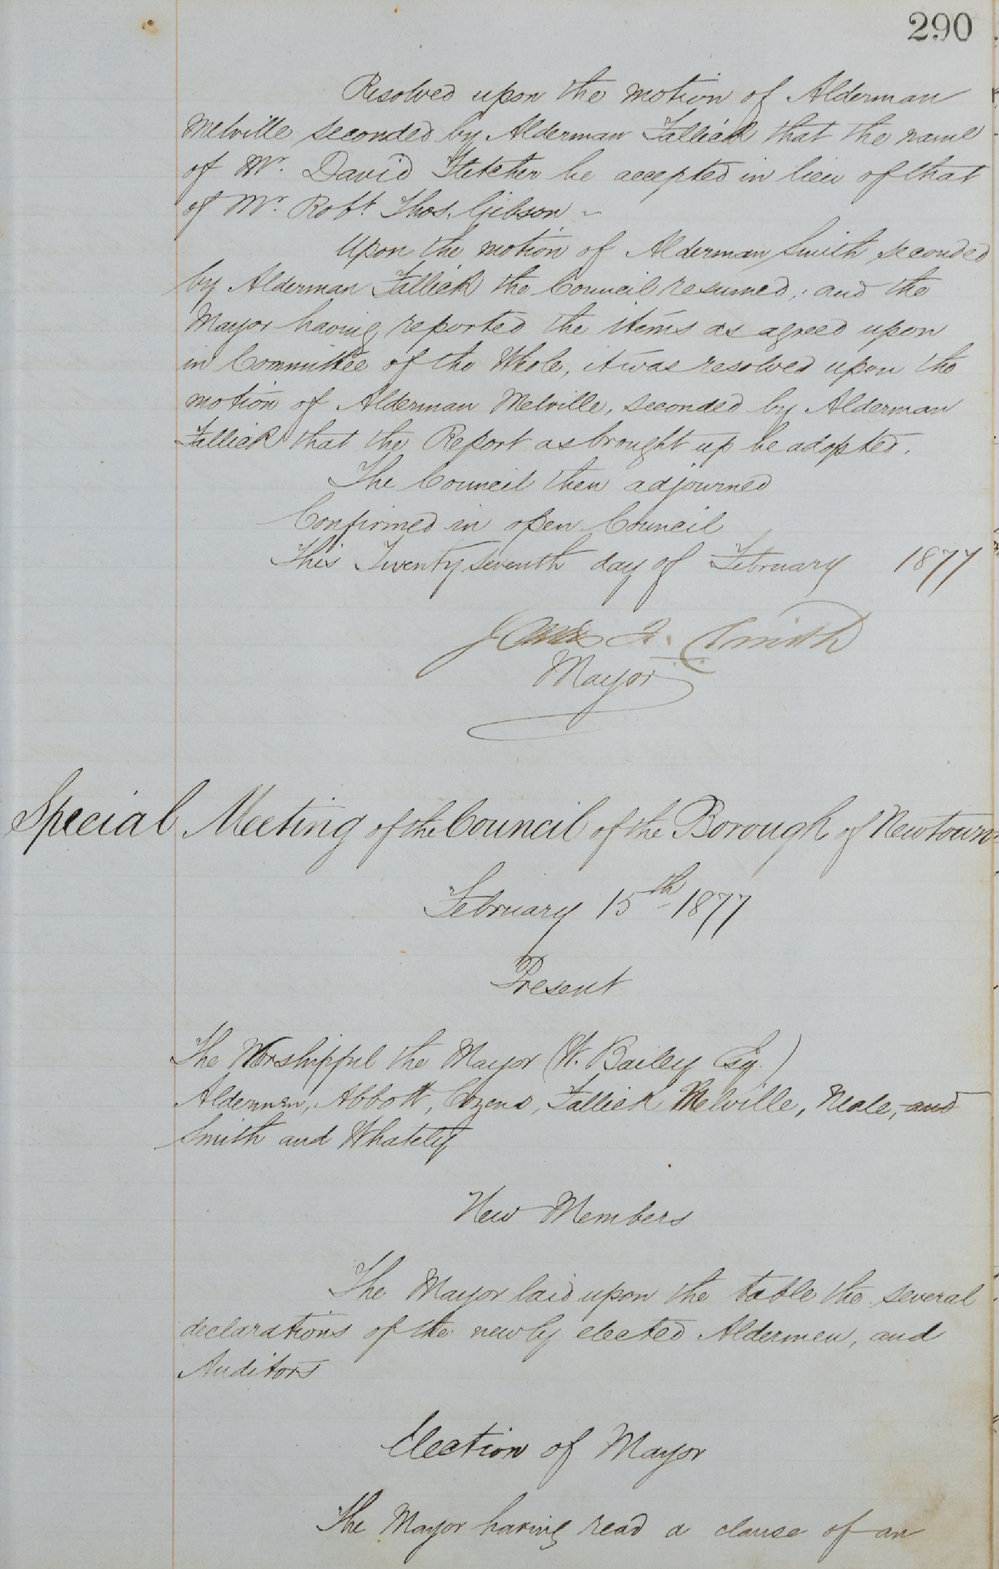 290
Resolved upon the motion of Alderman
Melville seconded by Alderman Fallick that the name
of Mr. David Fletcher be accepted in lieu of that
of Mr. Robt. Thos. Gibson ~
Upon the motion of Alderman Smith seconded
by Alderman Fallick the Council resumed, and the
Mayor having reported the items as agreed upon
in Committee of the Whole, it was resolved upon the
motion of Alderman Melville, seconded by Alderman
Fallick that the Report as brought up be adopted.
The Council then adjourned
Confirmed in open Council
This Twenty seventh day of February 1877
James F. Smith
Mayor
Special Meeting of the Council of the Borough of Newtown
February 15th 1877
Present
The Worshipful the Mayor (W. Bailey Esq.)
Aldermen, Abbott, Cozens, Fallick Melville, Neale, and
Smith and Whately
New Members
The Mayor laid upon the table the several
declarations of the newly elected Aldermen, and
Auditors
Election of Mayor
The Mayor having read a clause of an